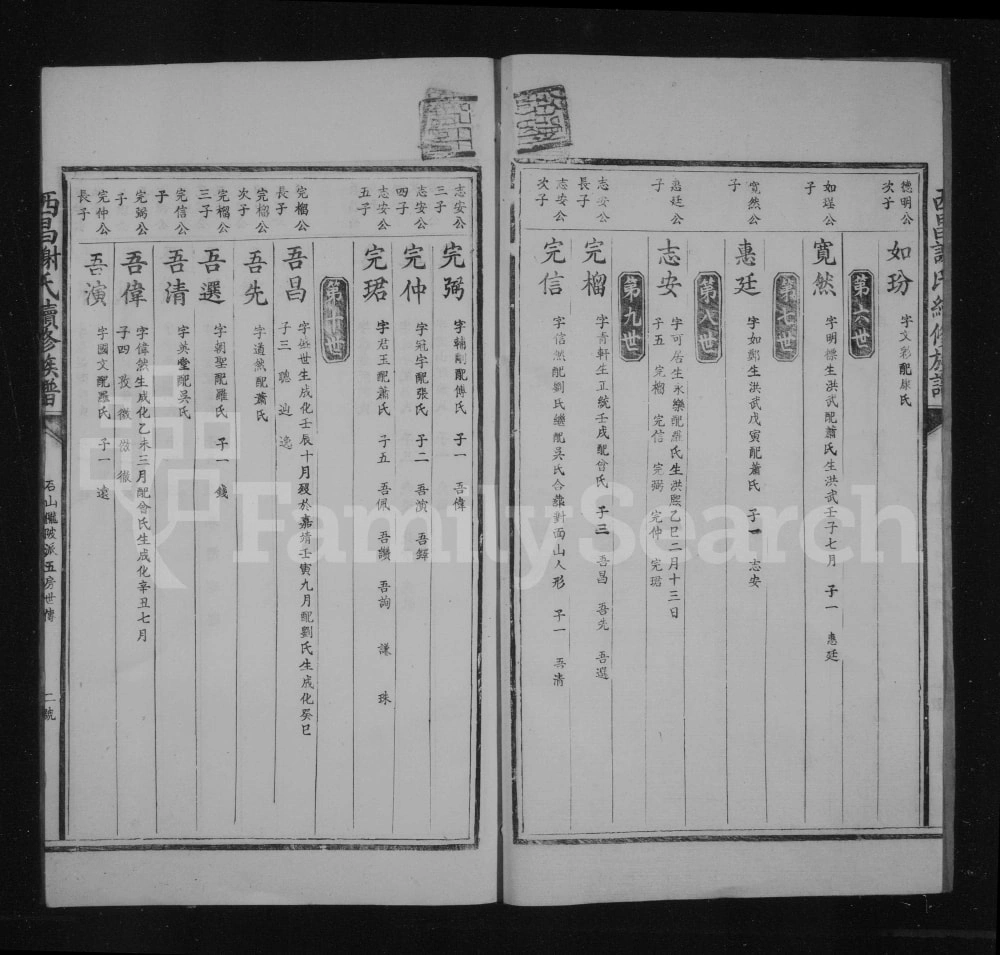 德明公
次子
如玢
字文彩配康氏
第六世
如瑆公
子
寬然
字明傑生洪武配蕭氏生洪武壬子七月 子一 惠廷
第七世
寬然公
子
惠廷
字如鄭生洪武戊寅配蕭氏 子一 志安
第八世
惠廷公
子
志安
字可居生永樂配羅氏生洪熙乙巳二月十三日
子五 完榴 完信 完弼 完仲 完珺
第九世
志安公
長子
完榴
字青軒生正統壬戌配曾氏 子三 吾昌 吾先 吾選
志安公
次子
完信
字信然配劉氏繼配吳氏合葬對面山人形 子一 吾清
志安公
三子
完弼
字輔剛配傅氏 子一 吾偉
志安公
四子
完仲
字冠宇配張氏 子二 吾演 吾鐸
志安公
五子
完珺
字君玉配蕭氏 子五 吾佩 吾讚 吾詢 謙 珠
第十世
完榴公
長子
吾昌
字 世生成化壬辰十月歿於嘉靖壬寅九月配劉氏生成化癸巳
子三 聰 逈 逸
完榴公
次子
吾先
字道然配蕭氏
完榴公
三子
吾選
字朝聖配羅氏 子一 錢
完信公
子
吾清
字英堂配吳氏
完弼公
子
吾偉
字偉然生成化乙未三月配曾氏生成化辛丑七月
子四 孜 微 徹
完仲公
長子
吾演
字國文配羅氏 子一 遠
西昌謝氏續修族譜
石山儺陂派五房世傳
二號
西昌謝氏續修族譜
FamilySearch